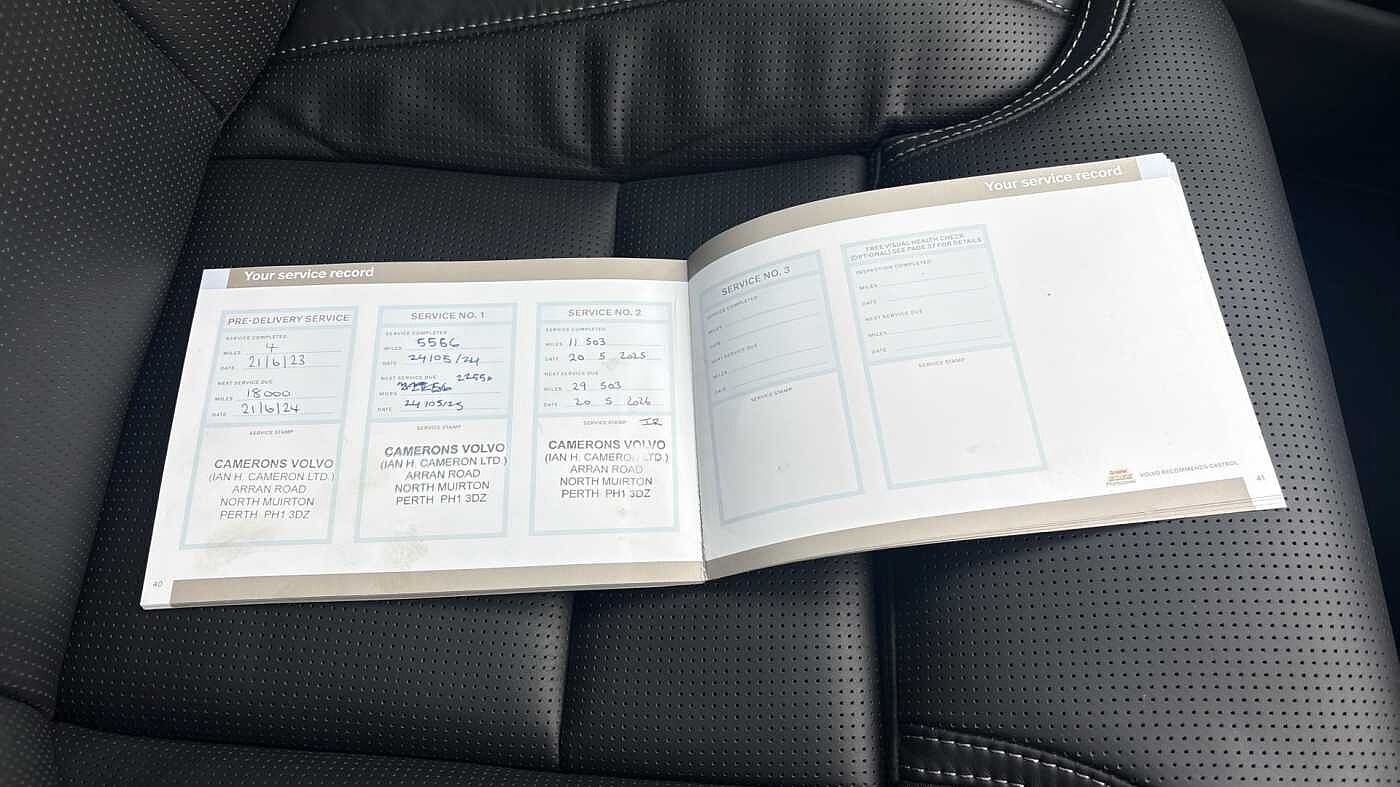 Your service record
PRE-DELIVERY SERVICE
SERVICE COMPLETED
MILES 4
DATE 21/6/23
NEXT SERVICE DUE
MILES 18000
DATE 21/6/24
SERVICE STAMP
CAMERONS VOLVO
(IAN H. CAMERON LTD.)
ARRAN ROAD
NORTH MUIRTON
PERTH PH1 3DZ
40
SERVICE NO. 1
SERVICE COMPLETED
MILES 5556
DATE 24/05/24
NEXT SERVICE DUE
MILES
DATE 24/05/25
SERVICE STAMP
CAMERONS VOLVO
(IAN H. CAMERON LTD.)
ARRAN ROAD
NORTH MUIRTON
PERTH PH1 3DZ
SERVICE NO. 2
SERVICE COMPLETED
MILES 11 503
DATE 20 5 2025
NEXT SERVICE DUE
MILES 29 503
DATE 20 5 2026
SERVICE STAMP
CAMERONS VOLVO
(IAN H. CAMERON LTD.)
ARRAN ROAD
NORTH MUIRTON
PERTH PH1 3DZ
Your service record
SERVICE NO. 3
SERVICE COMPLETED
MILES
DATE
NEXT SERVICE DUE
MILES
DATE
SERVICE STAMP
FREE VISUAL HEALTH CHECK
(OPTIONAL) SEE PAGE 37 FOR DETAILS
INSPECTION COMPLETED
MILES
DATE
NEXT SERVICE DUE
MILES
DATE
SERVICE STAMP
VOLVO RECOMMENDS CASTROL
41